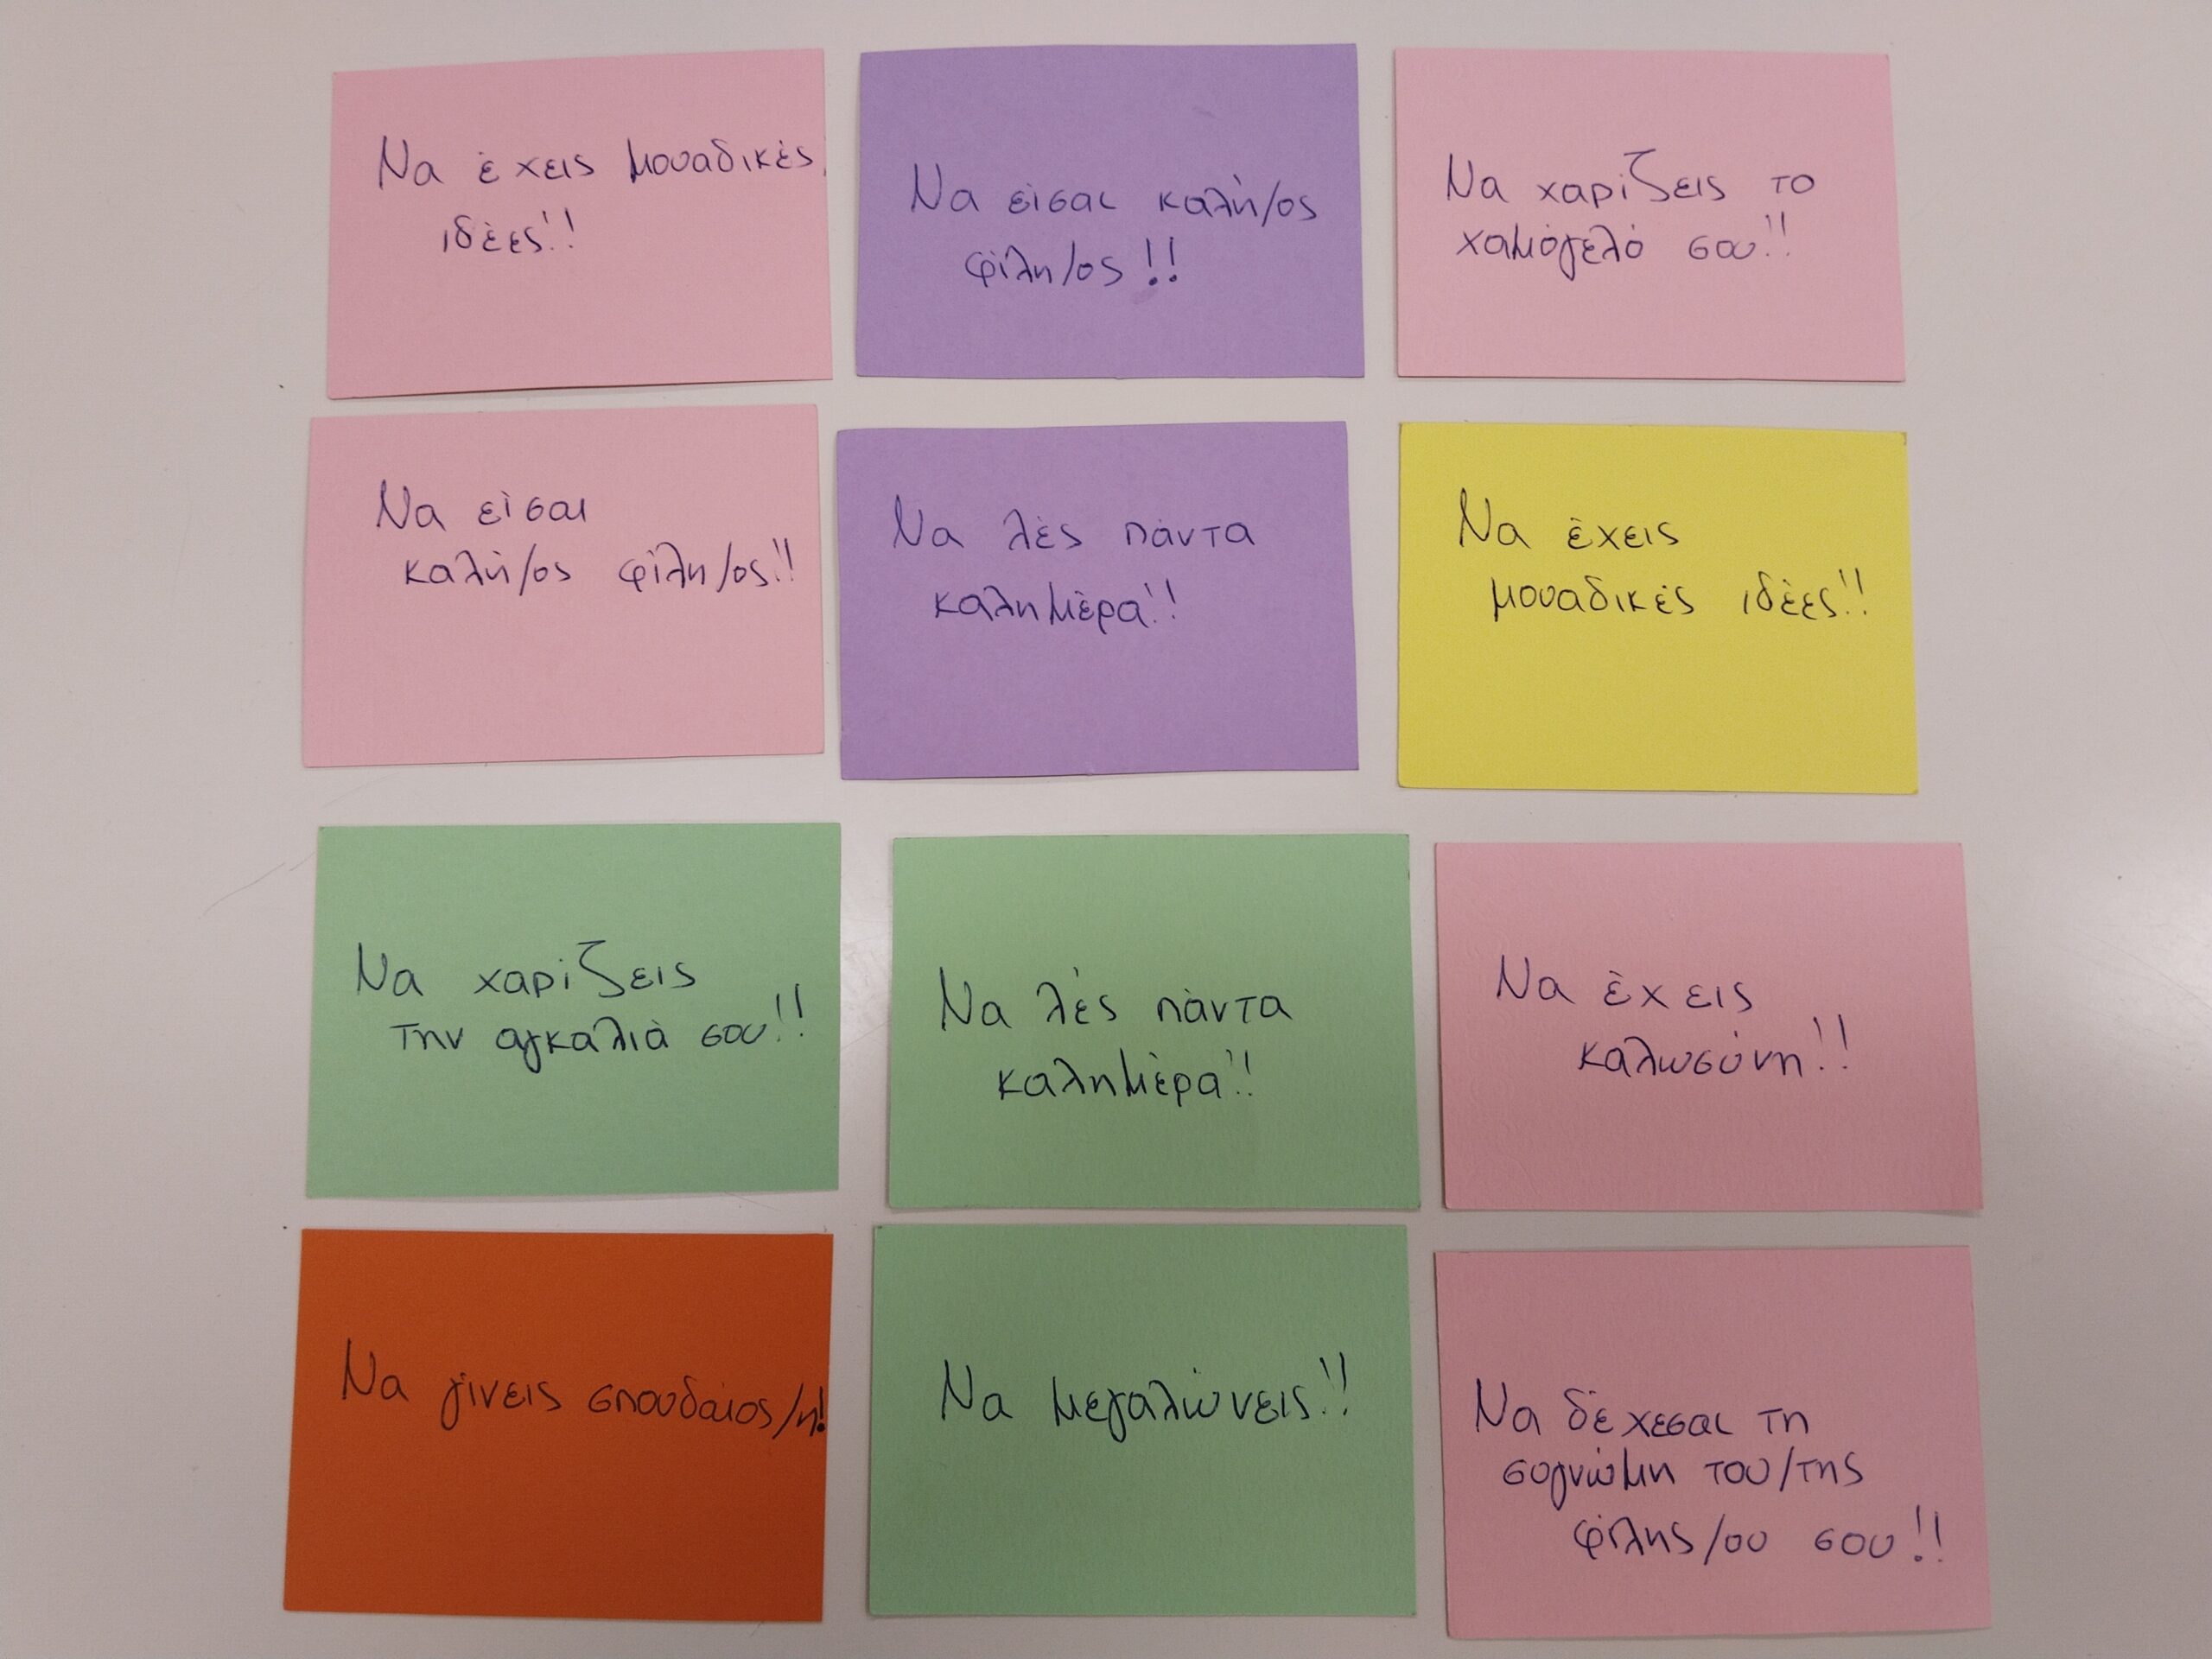 Να έχεις μοναδικές
ιδέες!!
Να είσαι καλή/ος
φίλη/ος!!
Να χαρίζεις το
χαμόγελό σου!!
Να είσαι
καλή/ος φίλη/ος!!
Να λές πάντα
καλημέρα!!
Να έχεις
μοναδικές ιδέες!!
Να χαρίζεις
την αγκαλιά σου!!
Να λές πάντα
καλημέρα!!
Να έχεις
καλωσύνη!!
Να γίνεις σπουδαίος/η!
Να μεγαλώνεις!!
Να δέχεσαι τη
συγνώμη του/της
φίλης/ου σου!!